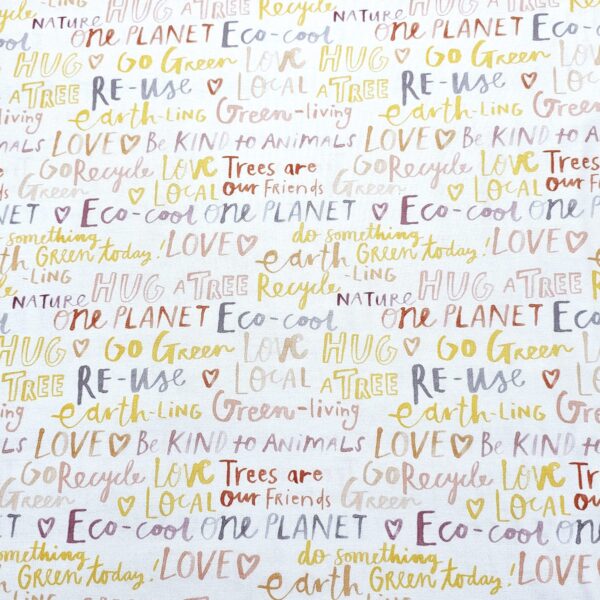 HUG A TREE Recycle
NATURE
-LING
NATURE
one PLANET Eco-cool one PLANET
HUG ♡ GO Green LOVE HUG ♡ GO Green
A TREE RE-USE ♡ LOCAL A TREE RE-USE
-living earth-LING Green-living earth-LING Green
ALS LOVE ♡ Be KIND to ANIMALS LOVE ♡ Be KIND to A
GO Recycle LOVE Trees are GO Recycle LOVE Trees
Green ♡ LOCAL our Friends Green ♡ LOCAL our
NET ♡ Eco-cool one PLANET ♡ Eco-cool one P
do something LOVE ♡ do something LOVE ♡
earth Green today! earth Green today!
-LING HUG A TREE Recycle -LING HUG A TREE Recycle
NATURE NATURE
one PLANET Eco-cool one PLANET Eco-cool
HUG ♡ GO Green LOVE HUG ♡ GO Green LOVE
A TREE RE-USE ♡ LOCAL A TREE RE-USE ♡ LOCAL
-living earth-LING Green-living earth-LING Green-living
ALS LOVE ♡ Be KIND to ANIMALS LOVE ♡ Be KIND to A
GO Recycle LOVE Trees are GO Recycle LOVE Trees
Green ♡ LOCAL our Friends Green ♡ LOCAL our
NET ♡ Eco-cool one PLANET ♡ Eco-cool one
do something LOVE ♡ do something LOVE ♡
Green today! earth Green today!